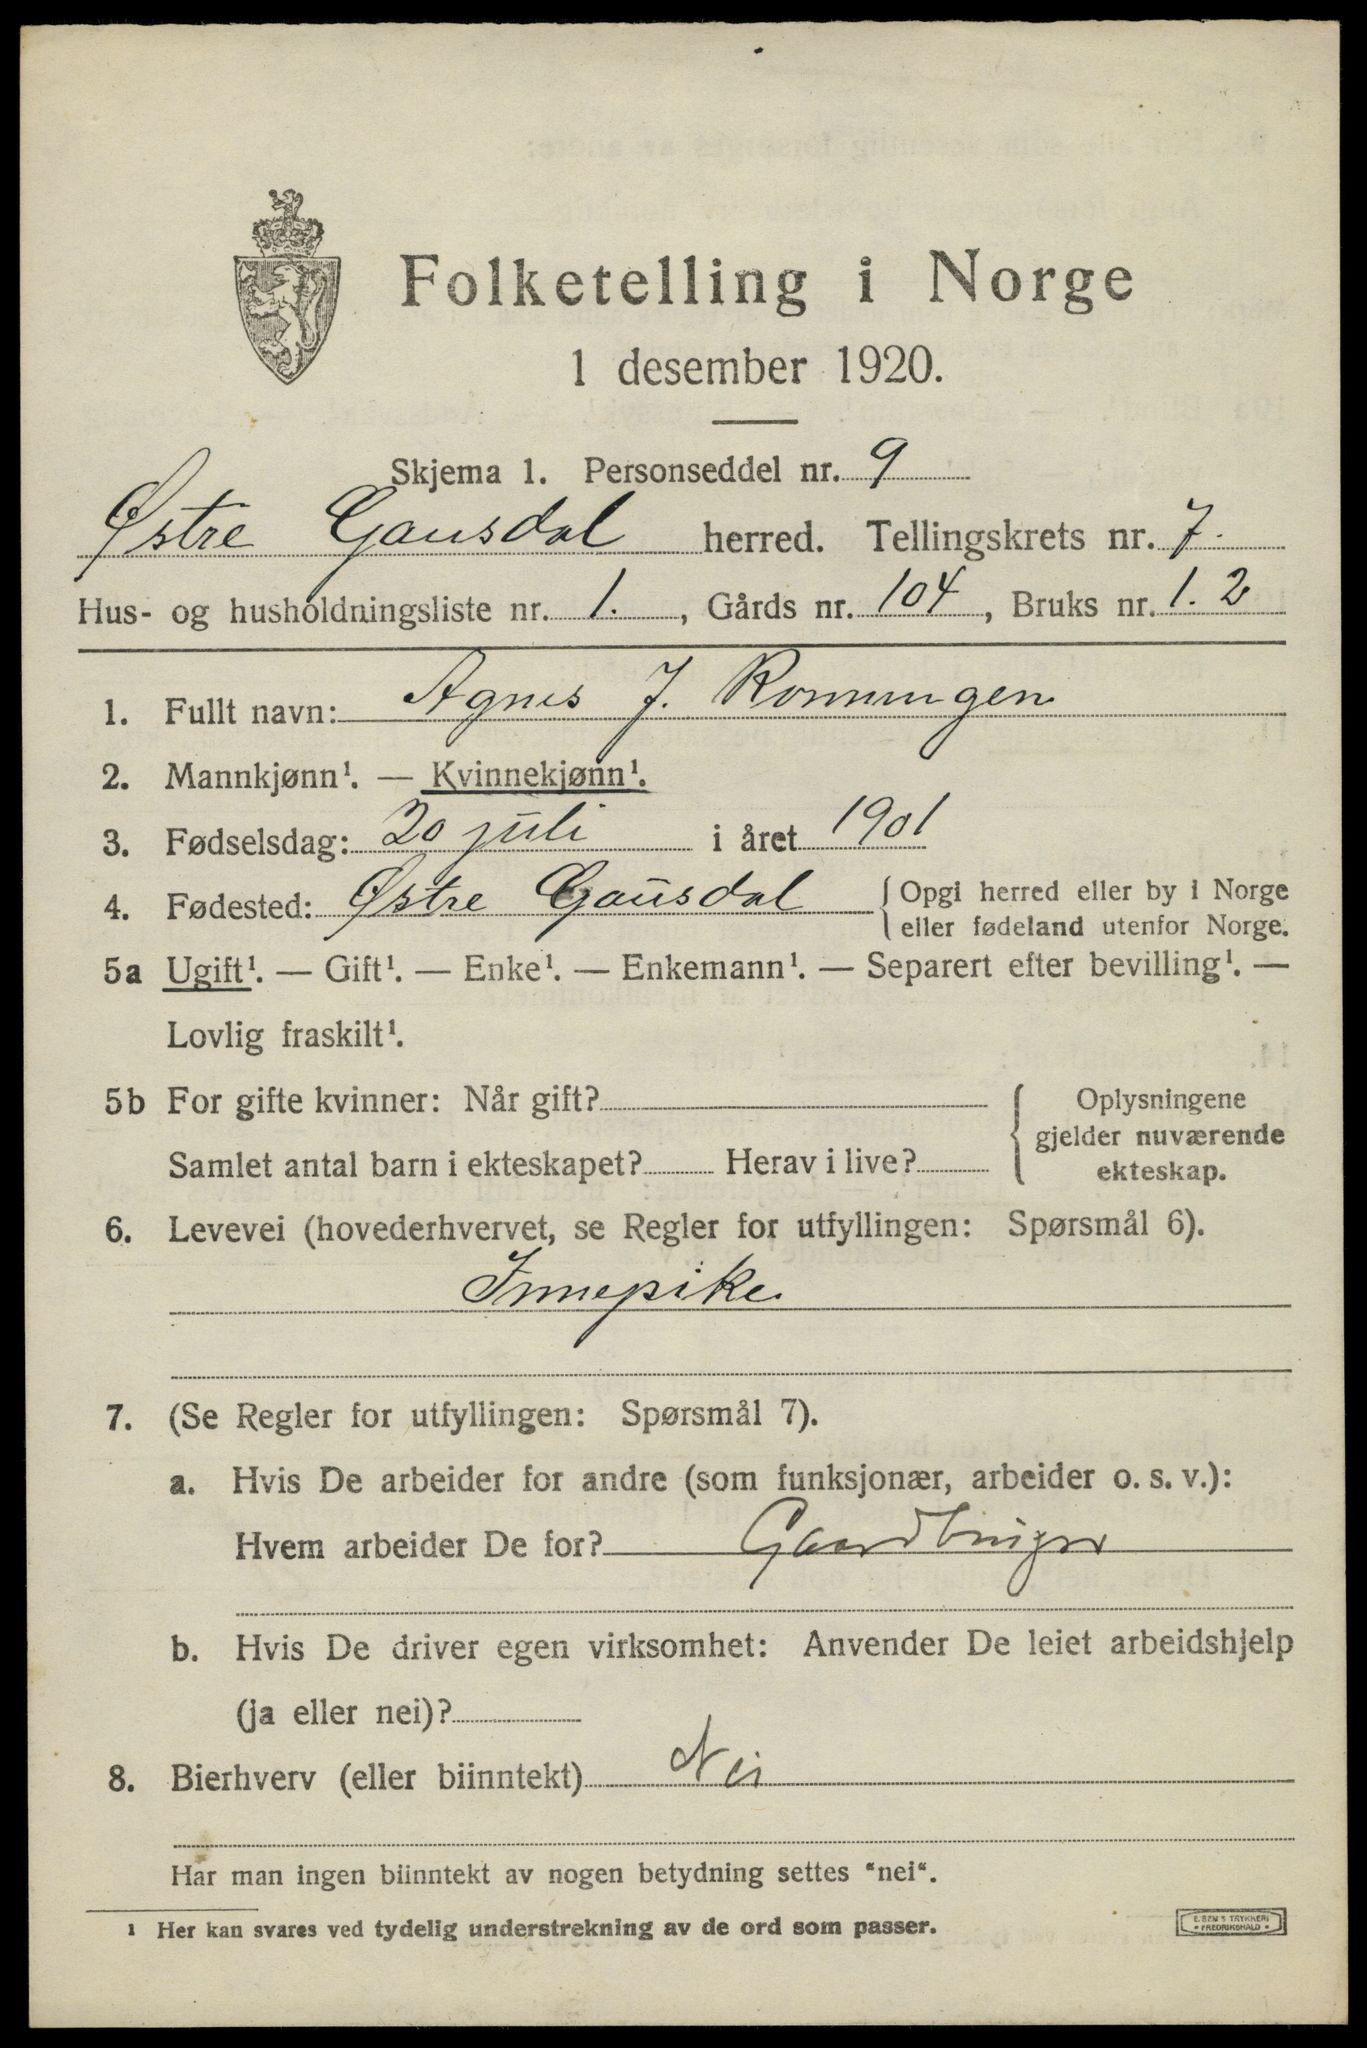 Folketelling i Norge
1 desember 1920.
Skjema 1. Personseddel nr. 9
Østre Gausdal herred. Tellingskrets nr. 7.
Hus- og husholdningsliste nr. 1. , Gårds nr. 104 , Bruks nr. 1. 2
1. Fullt navn: Agnes J. Rønningen
2. Mannkjønn¹. — Kvinnekjønn¹.
3. Fødselsdag: 20 juli i året 1901
4. Fødested: Østre Gausdal { Opgi herred eller by i Norge
eller fødeland utenfor Norge.
5a Ugift¹. — Gift¹. — Enke¹. — Enkemann¹. — Separert efter bevilling¹. —
Lovlig fraskilt¹.
5b For gifte kvinner: Når gift? { Oplysningene
gjelder nuværende
Samlet antal barn i ekteskapet? Herav i live? ekteskap.
6. Levevei (hovederhvervet, se Regler for utfyllingen: Spørsmål 6).
Innepike
7. (Se Regler for utfyllingen: Spørsmål 7).
a. Hvis De arbeider for andre (som funksjonær, arbeider o. s. v.):
Hvem arbeider De for? Gaardbruger
b. Hvis De driver egen virksomhet: Anvender De leiet arbeidshjelp
(ja eller nei)?
8. Bierhverv (eller biinntekt) Nei
Har man ingen biinntekt av nogen betydning settes "nei".
¹ Her kan svares ved tydelig understrekning av de ord som passer.
E. SEM'S TRYKKERI
• FREDRIKSHALD •